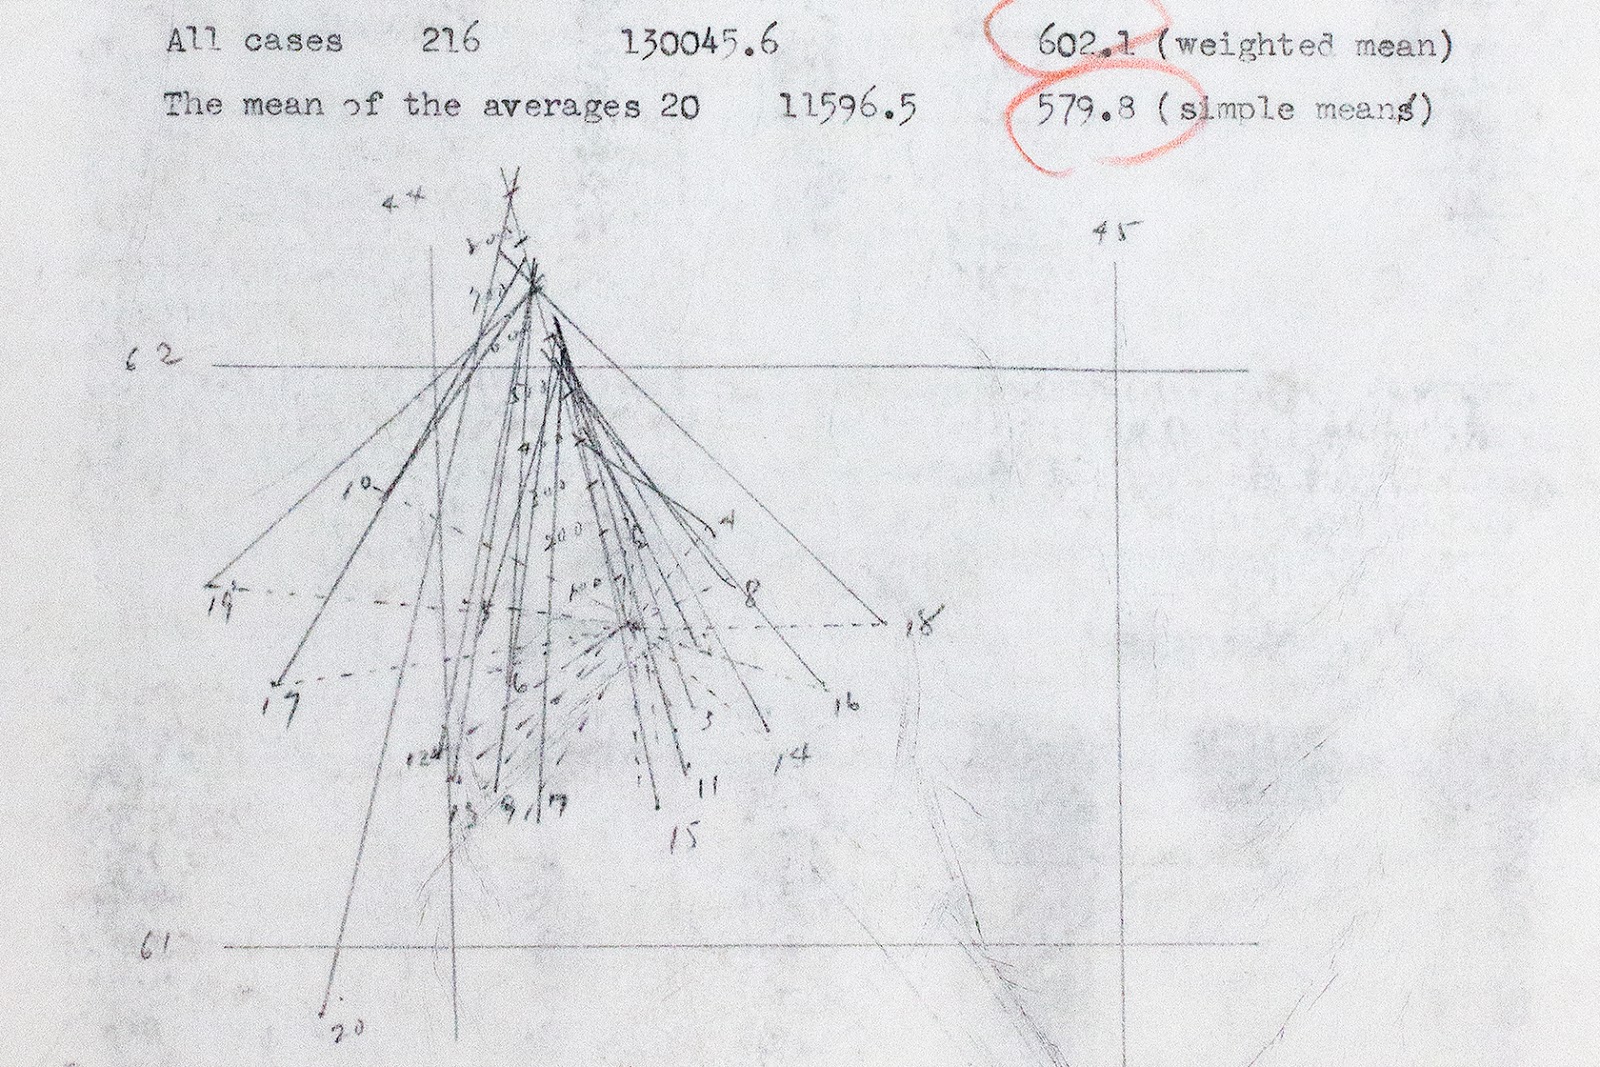 All cases 216 130045.6 602.1 (weighted mean)
The mean of the averages 20 11596.5 579.8 (simple means)
44
45
800
700
62
600
500
400
10
300
200
4
100
8
19
18
6
17
3
16
12
14
13 9 1 7
11
15
61
20